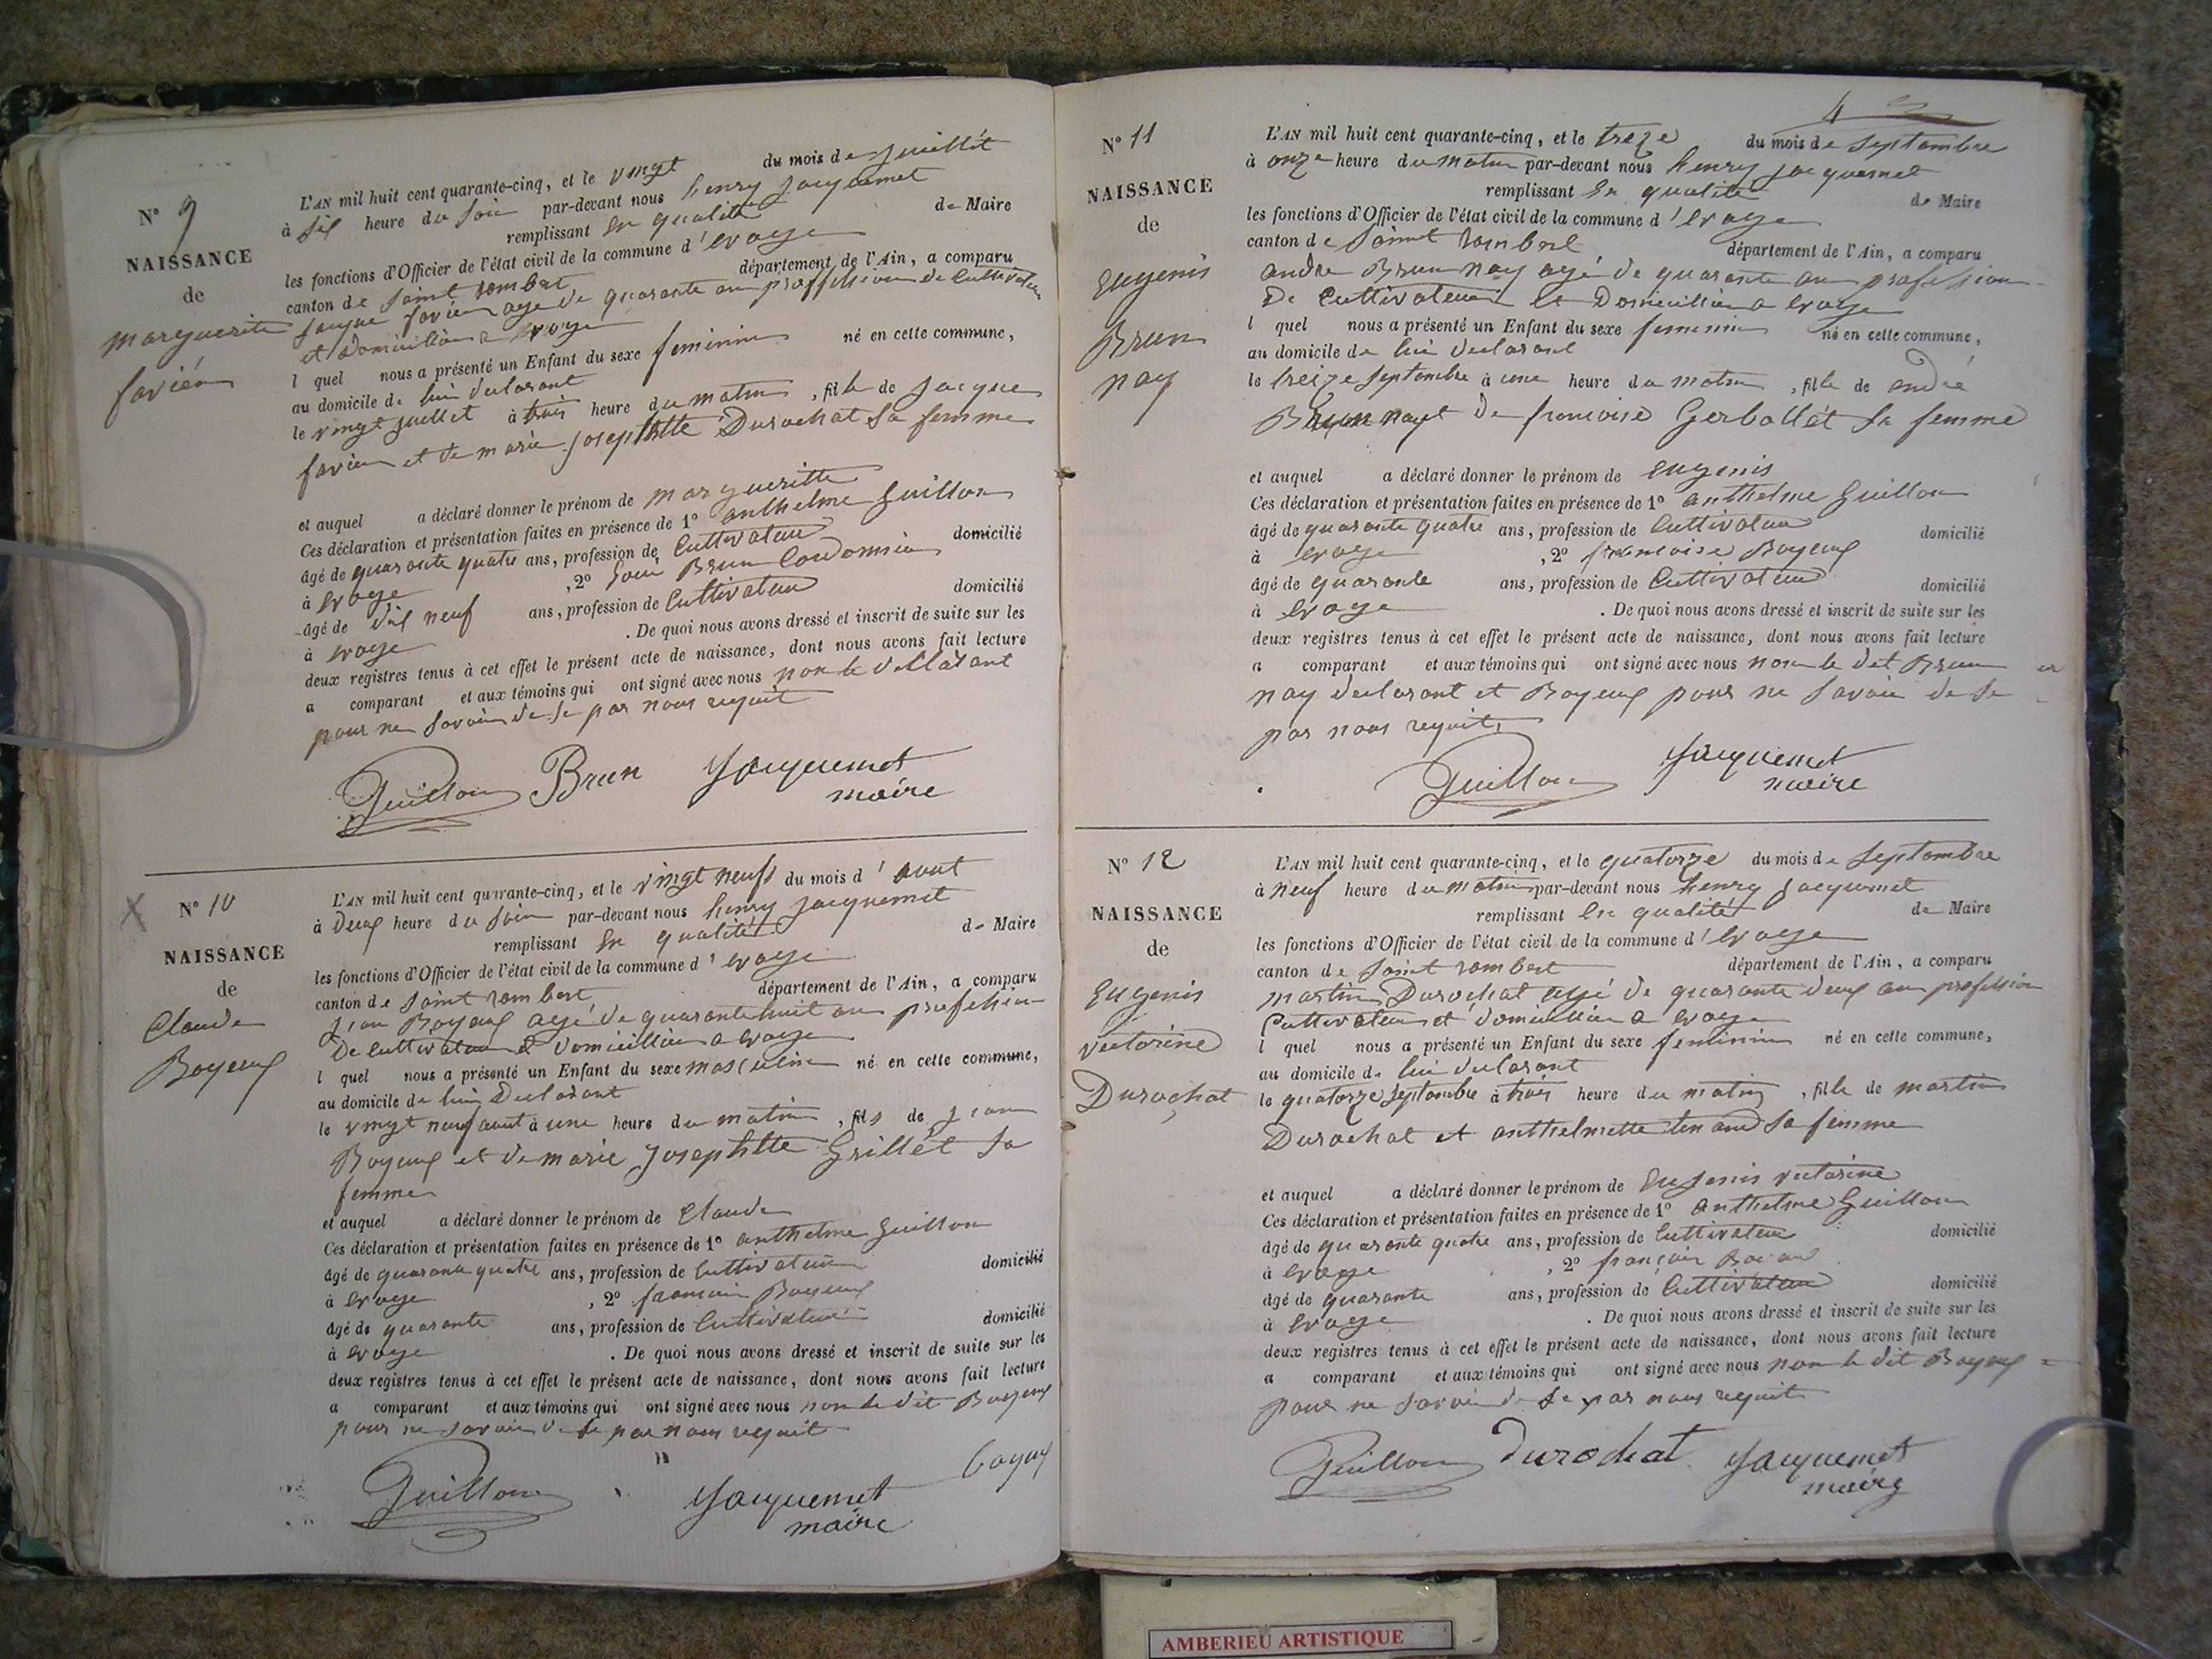 N° 9
NAISSANCE
de
marguerite
favier
L'AN mil huit cent quarante-cinq, et le vingt du mois de juillet
à six heure du soir par-devant nous henry jacquemet
remplissant en qualité de Maire
les fonctions d'Officier de l'état civil de la commune d'evoge
canton de saint rombert département de l'Ain, a comparu
jacque favier age de quarante an proffession de cultivateur
et domicillier a evoge
l quel nous a présenté un Enfant du sexe feminin né en cette commune,
au domicile de lui declarant
le vingt juillet à trois heure du matin, fille de jacque
favier et de marie josephtte Durochat sa femme
et auquel a déclaré donner le prénom de margueritte
Ces déclaration et présentation faites en présence de 1° anthelme guillon
âgé de quarante quatre ans, profession de cultivateur domicilié
à evoge, 2° Brun
âgé de dix neuf ans, profession de cultivateur domicilié
à evoge. De quoi nous avons dressé et inscrit de suite sur les
deux registres tenus à cet effet le présent acte de naissance, dont nous avons fait lecture
a comparant et aux témoins qui ont signé avec nous non le déclarant
pour ne savoir de se par nous requit
Guillon Brun Jacquemet
maire
N° 10
NAISSANCE
de
Claude
Boyeux
L'AN mil huit cent quarante-cinq, et le vingt neuf du mois d'aout
à deux heure du soir par-devant nous henry jacquemet
remplissant en qualité de Maire
les fonctions d'Officier de l'état civil de la commune d'evoge
canton de saint rombert département de l'Ain, a comparu
jean Boyeux agé de quarante huit an profession
de cultivateur et domicillier a evoge
l quel nous a présenté un Enfant du sexe masculin né en cette commune,
au domicile de lui Declarant
le vingt neuf aout à une heure du matin, fils de jean
Boyeux et de marie josephtte Grillét sa
femme
et auquel a déclaré donner le prénom de Claude
Ces déclaration et présentation faites en présence de 1° anthelme guillon
âgé de quarante quatre ans, profession de cultivateur domicilié
à evoge, 2° Boyeux
âgé de quarante ans, profession de cultivateur domicilié
à evoge. De quoi nous avons dressé et inscrit de suite sur les
deux registres tenus à cet effet le présent acte de naissance, dont nous avons fait lecture
a comparant et aux témoins qui ont signé avec nous non le dit Boyeux
pour ne savoir de se par nous requit
Boyeux
Guillon Jacquemet
maire
4
N° 11
NAISSANCE
de
Eugenis
Brun
nay
L'AN mil huit cent quarante-cinq, et le treze du mois de septembre
à onze heure du matin par-devant nous henry jacquemet
remplissant en qualité de Maire
les fonctions d'Officier de l'état civil de la commune d'evoge
canton de saint rombert département de l'Ain, a comparu
andre Brun nay agé de quarante an profession
De cultivateur et Domicillier a evoge
l quel nous a présenté un Enfant du sexe feminin né en cette commune,
au domicile de lui declarant
le treize septembre à une heure du matin, fille de andré
Brun nay et de francoise Gerbollét sa femme
et auquel a déclaré donner le prénom de eugenis
Ces déclaration et présentation faites en présence de 1° anthelme Guillon
âgé de quarante quatre ans, profession de cultivateur domicilié
à evoge, 2° francoise Boyeux
âgé de quarante ans, profession de cultivateur domicilié
à evoge. De quoi nous avons dressé et inscrit de suite sur les
deux registres tenus à cet effet le présent acte de naissance, dont nous avons fait lecture
a comparant et aux témoins qui ont signé avec nous non le dit Brun
nay declarant et Boyeux pour ne savoir de se
par nous requit
Guillon Jacquemet
maire
N° 12
NAISSANCE
de
Eugenis
victorine
Durochat
L'AN mil huit cent quarante-cinq, et le quatorze du mois de septembre
à neuf heure du matin par-devant nous henry jacquemet
remplissant en qualité de Maire
les fonctions d'Officier de l'état civil de la commune d'evoge
canton de saint rombert département de l'Ain, a comparu
martin Durochat agé de quarante deux an profession
cultivateur et domicillier a evoge
l quel nous a présenté un Enfant du sexe feminin né en cette commune,
au domicile de lui declarant
le quatorze septembre à trois heure du matin, fille de martin
Durochat et anthelmette sa femme
et auquel a déclaré donner le prénom de Eugenis victorine
Ces déclaration et présentation faites en présence de 1° anthelme Guillon
âgé de quarante quatre ans, profession de cultivateur domicilié
à evoge, 2° françois
âgé de quarante ans, profession de cultivateur domicilié
à evoge. De quoi nous avons dressé et inscrit de suite sur les
deux registres tenus à cet effet le présent acte de naissance, dont nous avons fait lecture
a comparant et aux témoins qui ont signé avec nous non le dit Boyeux
pour ne savoir de se par nous requit
Guillon Durochat Jacquemet
maire
AMBERIEU ARTISTIQUE